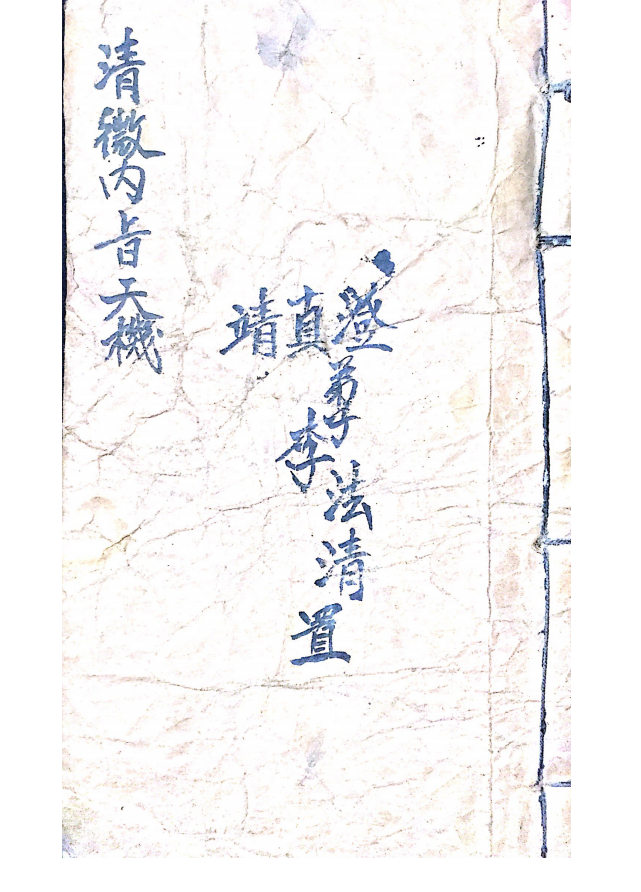 澄真靖
弟子李法清置
清微内旨天機